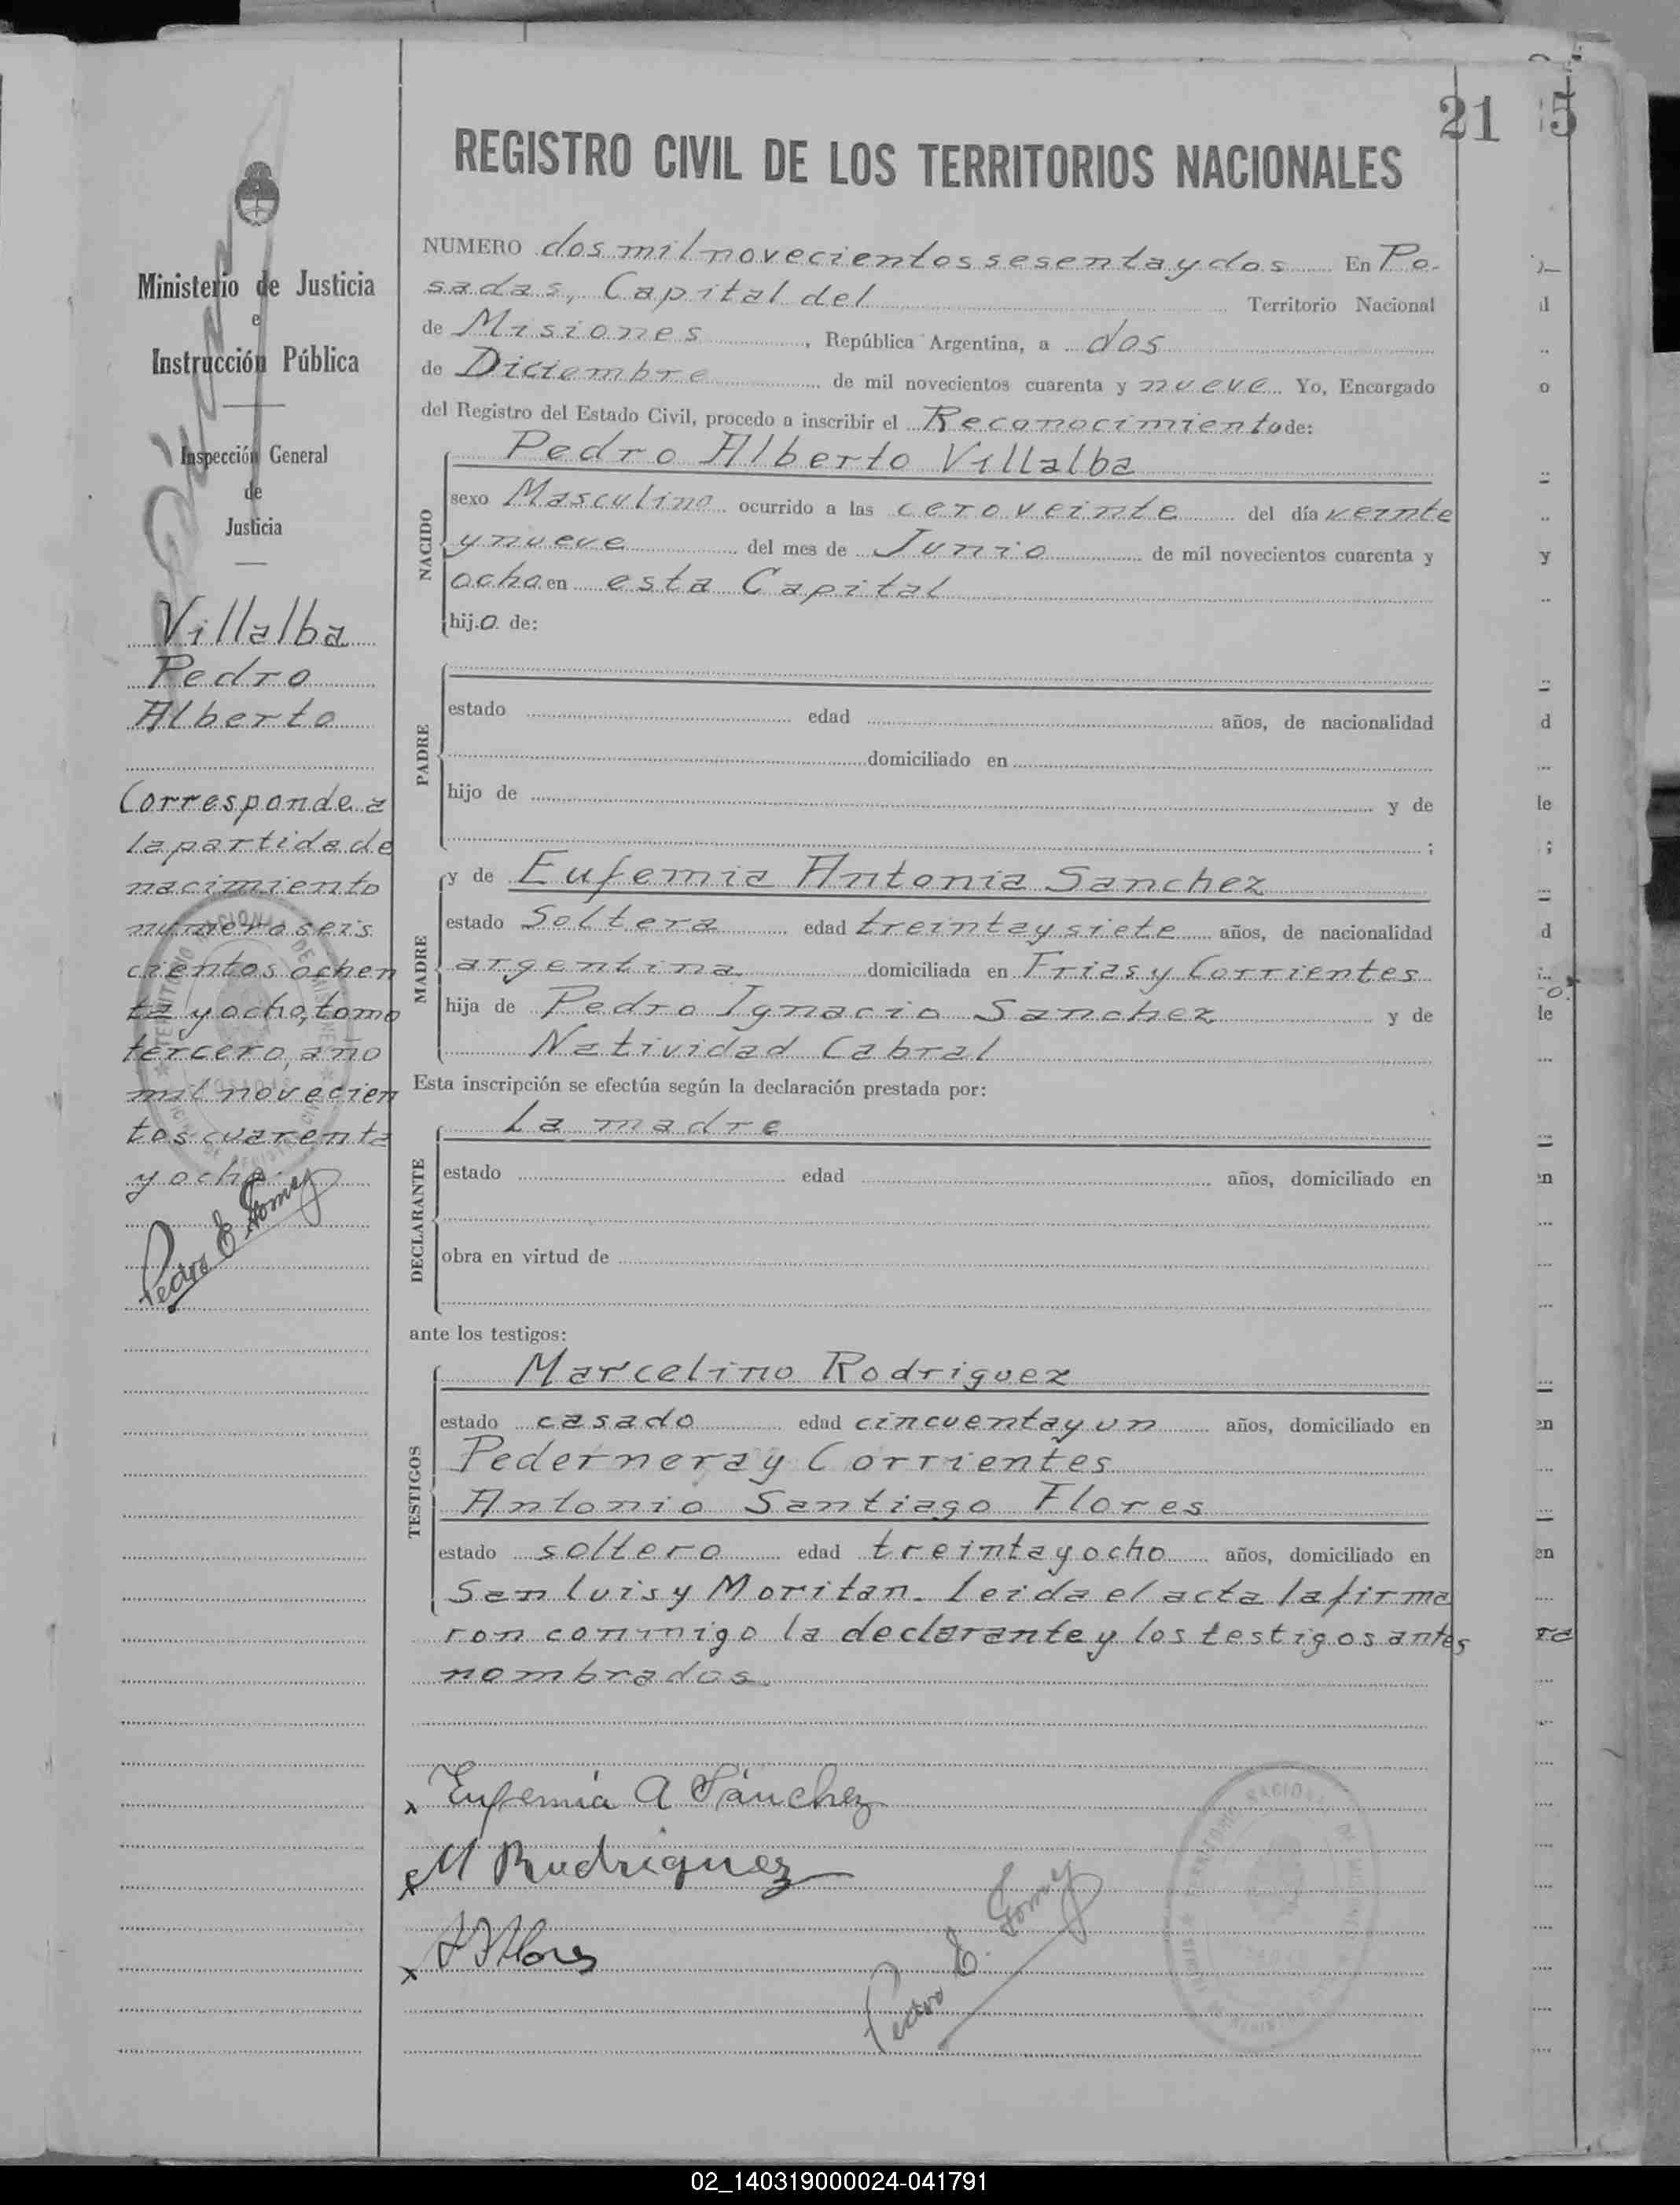 21 5
REGISTRO CIVIL DE LOS TERRITORIOS NACIONALES
Ministerio de Justicia
e
Instrucción Pública
Inspección General
de
Justicia
Villalba
Pedro
Alberto
Corresponde a
la partida de
nacimiento
numero seis
cientos ochen
ta y ocho, tomo
tercero, año
mil novecien
tos cuarenta
y ocho.
Pedro E Gomez
NUMERO dos mil novecientos sesenta y dos En Po-
sadas, Capital del Territorio Nacional
de Misiones, República Argentina, a dos
de Diciembre de mil novecientos cuarenta y nueve Yo, Encargado
del Registro del Estado Civil, procedo a inscribir el Reconocimiento de:
NACIDO
Pedro Alberto Villalba
sexo Masculino ocurrido a las cero veinte del día veinte
y nueve del mes de Junio de mil novecientos cuarenta y
ocho en esta Capital
hijo de:
PADRE
estado edad años, de nacionalidad
domiciliado en
hijo de y de
;
MADRE
y de Eufemia Antonia Sanchez
estado Soltera edad treinta y siete años, de nacionalidad
argentina domiciliada en Frias y Corrientes
hija de Pedro Ignacio Sanchez y de
Natividad Cabral
Esta inscripción se efectúa según la declaración prestada por:
DECLARANTE
La madre
estado edad años, domiciliado en
obra en virtud de
ante los testigos:
TESTIGOS
Marcelino Rodriguez
estado casado edad cincuenta y un años, domiciliado en
Pedernera y Corrientes
Antonio Santiago Flores
estado soltero edad treinta y ocho años, domiciliado en
San Luis y Moritan. Leida el acta la firma
ron conmigo la declarante y los testigos antes
nombrados.
x Eufemia A Sánchez
x M Rudriguez
x Flores
Pedro E. Gomez
02_140319000024-041791